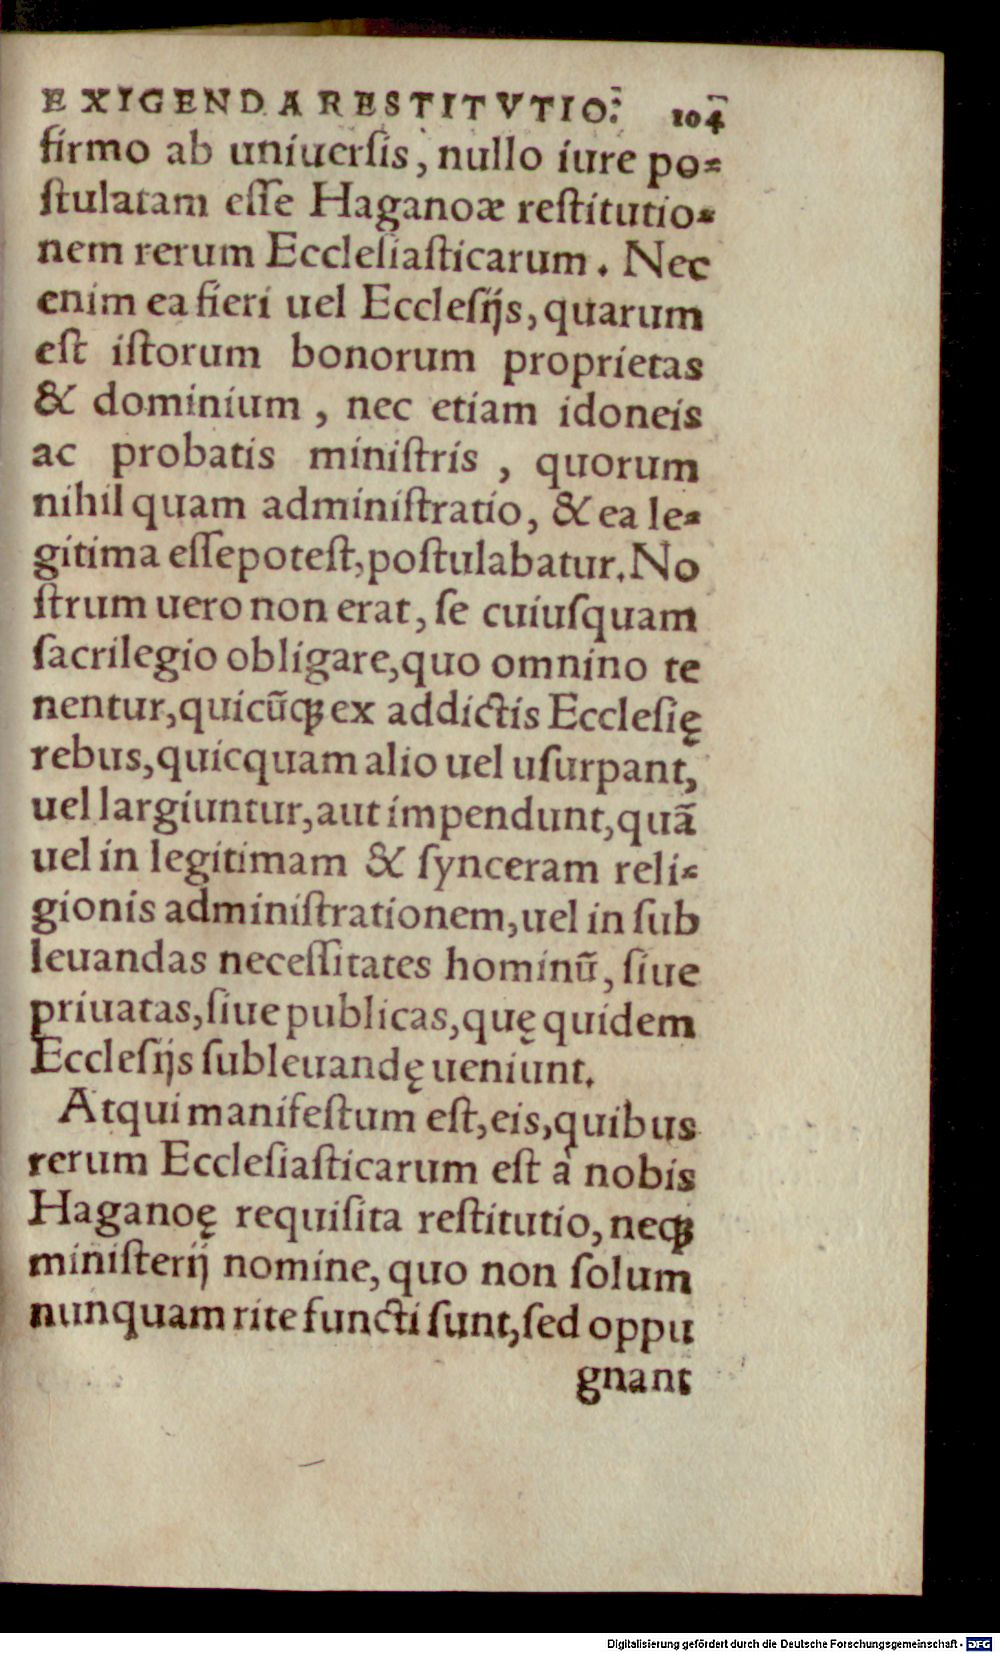 EXIGENDA RESTITVTIO: 104
firmo ab uniuersis, nullo iure po-
ſtulatam eſſe Haganoæ reſtitutio-
nem rerum Eccleſiaſticarum. Nec
enim ea fieri uel Eccleſijs, quarum
eſt iſtorum bonorum proprietas
& dominium, nec etiam idoneis
ac probatis miniſtris, quorum
nihil quam adminiſtratio, & ea le-
gitima eſſe poteſt, poſtulabatur. No
ſtrum uero non erat, ſe cuiuſquam
ſacrilegio obligare, quo omnino te
nentur, quicũꝗ ex addictis Eccleſię
rebus, quicquam alio uel uſurpant,
uel largiuntur, aut impendunt, quã
uel in legitimam & ſynceram reli-
gionis adminiſtrationem, uel in ſub
leuandas neceſſitates hominũ, ſiue
priuatas, ſiue publicas, quę quidem
Eccleſijs ſubleuandę ueniunt.
Atqui manifeſtum eſt, eis, quibus
rerum Eccleſiaſticarum eſt à nobis
Haganoę requiſita reſtitutio, neꝗ
miniſterij nomine, quo non ſolum
nunquam rite functi ſunt, ſed oppu
gnant
Digitalisierung gefördert durch die Deutsche Forschungsgemeinschaft - DFG